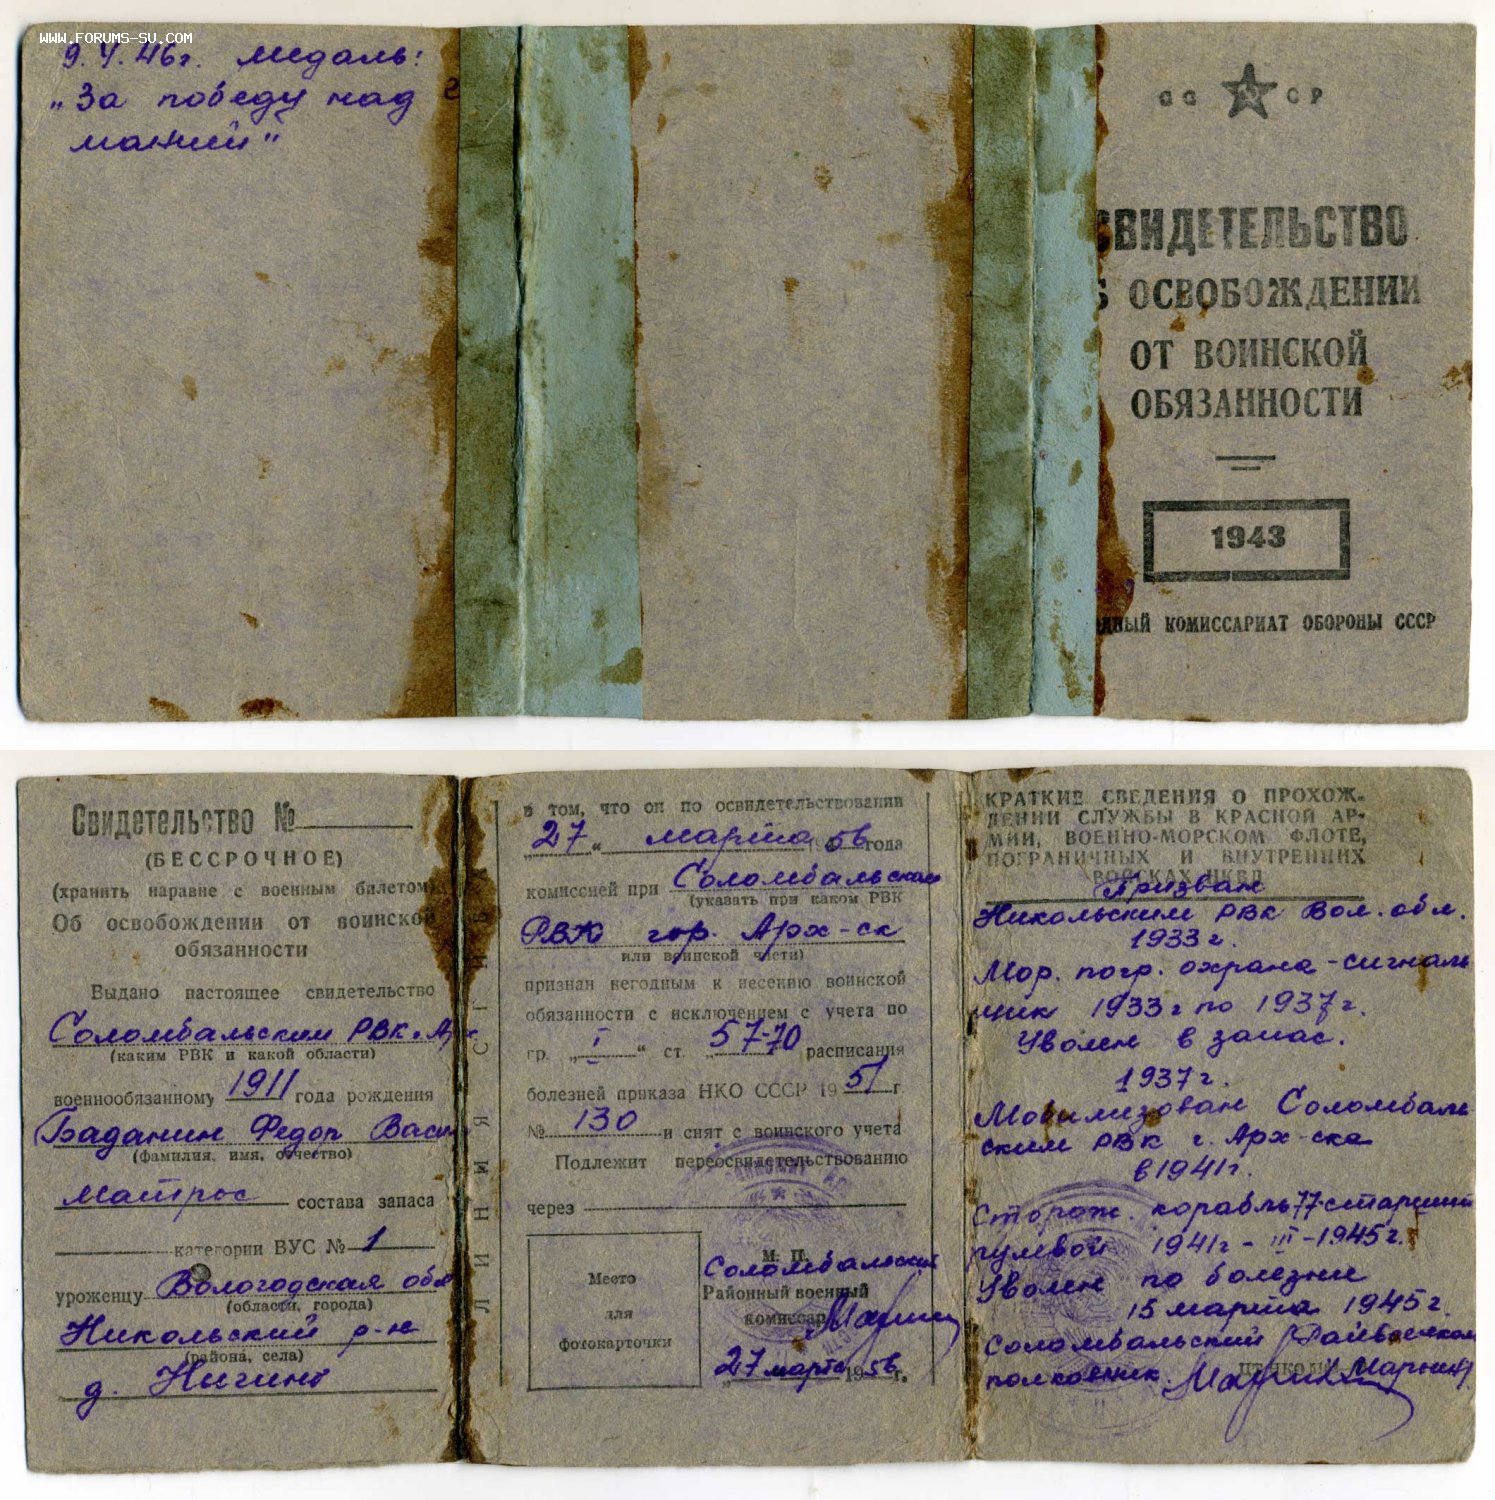 WWW.FORUMS-SU.COM
9.V.46г. медаль:
„За победу над г
манией"
СС СР
СВИДЕТЕЛЬСТВО
Б ОСВОБОЖДЕНИИ
ОТ ВОИНСКОЙ
ОБЯЗАННОСТИ
1943
ДНЫЙ КОМИССАРИАТ ОБОРОНЫ СССР
Свидетельство №
(БЕССРОЧНОЕ)
(хранить наравне с военным билетом)
Об освобождении от воинской
обязанности
Выдано настоящее свидетельство
Соломбальским РВК г. Арх
(каким РВК и какой области)
военнообязанному 1911 года рождения
Баданин Федор Васи
(фамилия, имя, отчество)
Матрос состава запаса
категории ВУС № 1
уроженцу Вологодская обл
(области, города)
Никольский р-н
(района, села)
д.
ЛИНИЯ СГИБ
в том, что он по освидетельствовании
„27" марта 1956 года
комиссией при Соломбальском
(указать при каком РВК
РВК гор. Арх-ск
или воинской части)
признан негодным к несению воинской
обязанности с исключением с учета по
гр. „I" ст. „57-70 расписания
болезней приказа НКО СССР 1951 г.
№ 130 и снят с воинского учета
Подлежит переосвидетельствованию
через
М. П.
Соломбальский
Районный военный
комиссар
27 марта 1956 г.
Место
для
фотокарточки
КРАТКИЕ СВЕДЕНИЯ О ПРОХОЖ-
ДЕНИИ СЛУЖБЫ В КРАСНОЙ АР-
МИИ, ВОЕННО-МОРСКОМ ФЛОТЕ,
ПОГРАНИЧНЫХ И ВНУТРЕННИХ
ВОЙСКАХ НКВД
Призван
Никольским РВК Вол. обл.
1933 г.
Мор. погр. охрана - сигналь
щик 1933 г по 1937 г.
Уволен в запас.
1937 г.
Мобилизован Соломбаль
ским РВК г. Арх-ска
в 1941 г.
Сторож. корабль 77-старший
рулевой 1941 г - III - 1945 г.
Уволен по болезни
15 марта 1945 г.
Соломбальский Райвоенком
полковник